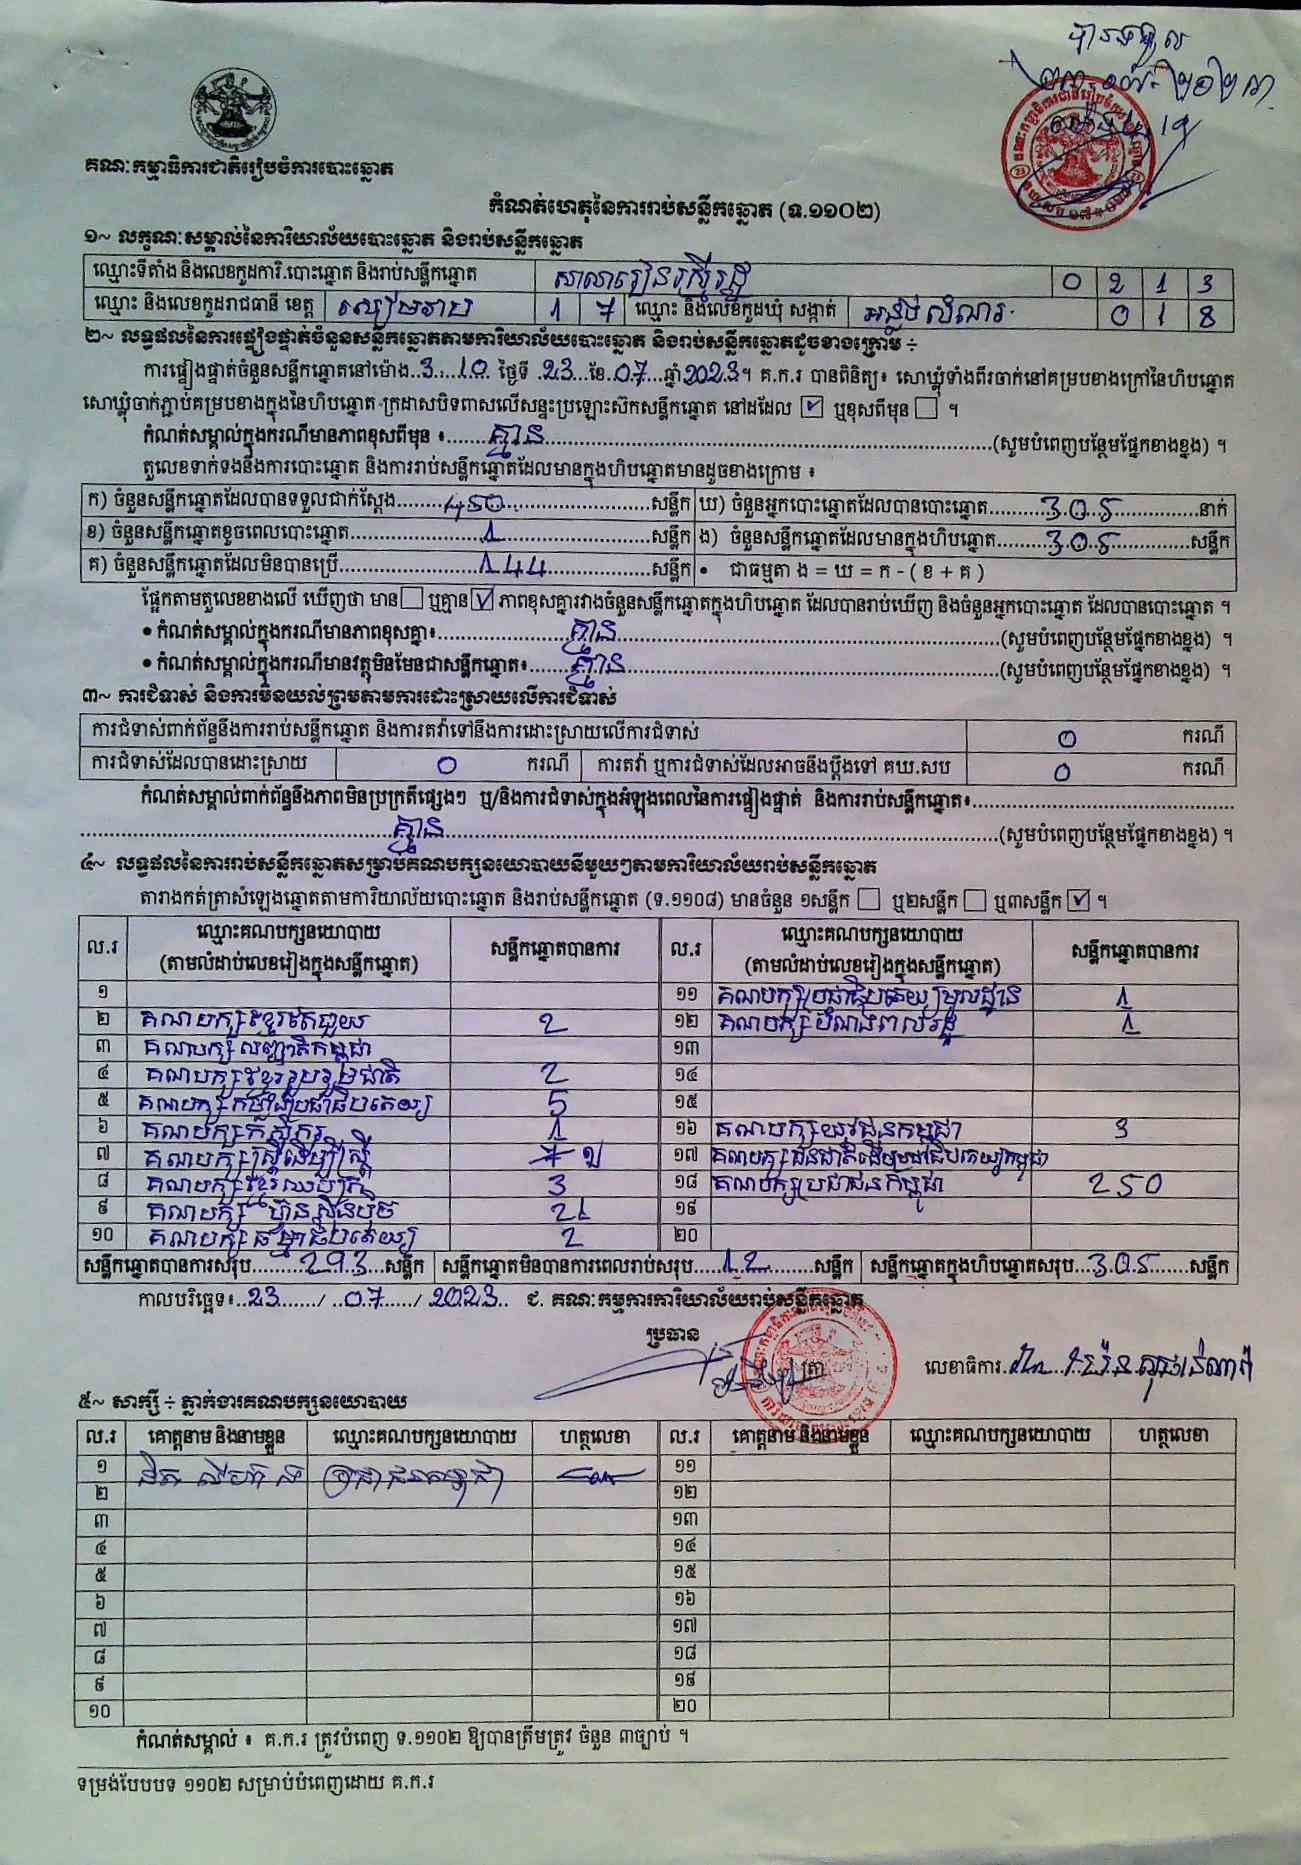 គណៈកម្មាធិការជាតិរៀបចំការបោះឆ្នោត
កំណត់ហេតុនៃការរាប់សន្លឹកឆ្នោត (ទ.១១០២)
១~ លក្ខណៈសម្គាល់នៃការិយាល័យបោះឆ្នោត និងរាប់សន្លឹកឆ្នោត
ឈ្មោះទីតាំង និងលេខកូដការិ.បោះឆ្នោត និងរាប់សន្លឹកឆ្នោត សាលារៀន 0 2 1 3
ឈ្មោះ និងលេខកូដរាជធានី ខេត្ត សៀមរាប 1 7 ឈ្មោះ និងលេខកូដឃុំ សង្កាត់ អន្លង់សំណរ 0 1 8
២~ លទ្ធផលនៃការផ្ទៀងផ្ទាត់ចំនួនសន្លឹកឆ្នោតតាមការិយាល័យបោះឆ្នោត និងរាប់សន្លឹកឆ្នោតដូចខាងក្រោម ÷
ការផ្ទៀងផ្ទាត់ចំនួនសន្លឹកឆ្នោតនៅម៉ោង..3....10.... ថ្ងៃទី .23...ខែ.07...ឆ្នាំ2023។ គ.ក.រ បានពិនិត្យ៖ សោឃ្លុំទាំងពីរចាក់នៅគម្របខាងក្រៅនៃហិបឆ្នោត
សោឃ្លុំចាក់ភ្ជាប់គម្របខាងក្នុងនៃហិបឆ្នោត ក្រដាសបិទពាសលើសន្ទះប្រឡោះស៊កសន្លឹកឆ្នោត នៅដដែល ☑ ឬខុសពីមុន ☐ ។
កំណត់សម្គាល់ក្នុងករណីមានភាពខុសពីមុន ៖.......គ្មាន.......(សូមបំពេញបន្ថែមផ្នែកខាងខ្នង) ។
តួលេខទាក់ទងនឹងការបោះឆ្នោត និងការរាប់សន្លឹកឆ្នោតដែលមានក្នុងហិបឆ្នោតមានដូចខាងក្រោម ៖
ក) ចំនួនសន្លឹកឆ្នោតដែលបានទទួលជាក់ស្តែង........450........សន្លឹក ឃ) ចំនួនអ្នកបោះឆ្នោតដែលបានបោះឆ្នោត........305........នាក់
ខ) ចំនួនសន្លឹកឆ្នោតខូចពេលបោះឆ្នោត........1........សន្លឹក ង) ចំនួនសន្លឹកឆ្នោតដែលមានក្នុងហិបឆ្នោត........305........សន្លឹក
គ) ចំនួនសន្លឹកឆ្នោតដែលមិនបានប្រើ........144........សន្លឹក • ជាធម្មតា ង = ឃ = ក - ( ខ + គ )
ផ្អែកតាមតួលេខខាងលើ ឃើញថា មាន ☐ ឬគ្មាន ☑ ភាពខុសគ្នារវាងចំនួនសន្លឹកឆ្នោតក្នុងហិបឆ្នោត ដែលបានរាប់ឃើញ និងចំនួនអ្នកបោះឆ្នោត ដែលបានបោះឆ្នោត ។
• កំណត់សម្គាល់ក្នុងករណីមានភាពខុសគ្នា៖........គ្មាន........(សូមបំពេញបន្ថែមផ្នែកខាងខ្នង) ។
• កំណត់សម្គាល់ក្នុងករណីមានវត្ថុមិនមែនជាសន្លឹកឆ្នោត៖........គ្មាន........(សូមបំពេញបន្ថែមផ្នែកខាងខ្នង) ។
៣~ ការជំទាស់ និងការមិនយល់ព្រមតាមការដោះស្រាយលើការជំទាស់
ការជំទាស់ពាក់ព័ន្ធនឹងការរាប់សន្លឹកឆ្នោត និងការតវ៉ាទៅនឹងការដោះស្រាយលើការជំទាស់ 0 ករណី
ការជំទាស់ដែលបានដោះស្រាយ 0 ករណី ការតវ៉ា ឬការជំទាស់ដែលអាចនឹងប្តឹងទៅ គឃ.សប 0 ករណី
កំណត់សម្គាល់ពាក់ព័ន្ធនឹងភាពមិនប្រក្រតីផ្សេងៗ ឬ/និងការជំទាស់ក្នុងអំឡុងពេលនៃការផ្ទៀងផ្ទាត់ និងការរាប់សន្លឹកឆ្នោត៖........
........គ្មាន........(សូមបំពេញបន្ថែមផ្នែកខាងខ្នង) ។
៤~ លទ្ធផលនៃការរាប់សន្លឹកឆ្នោតសម្រាប់គណបក្សនយោបាយនីមួយៗតាមការិយាល័យរាប់សន្លឹកឆ្នោត
តារាងកត់ត្រាសំឡេងឆ្នោតតាមការិយាល័យបោះឆ្នោត និងរាប់សន្លឹកឆ្នោត (ទ.១១០៨) មានចំនួន ១សន្លឹក ☐ ឬ២សន្លឹក ☐ ឬ៣សន្លឹក ☑ ។
ល.រ ឈ្មោះគណបក្សនយោបាយ សន្លឹកឆ្នោតបានការ ល.រ ឈ្មោះគណបក្សនយោបាយ សន្លឹកឆ្នោតបានការ
(តាមលំដាប់លេខរៀងក្នុងសន្លឹកឆ្នោត) (តាមលំដាប់លេខរៀងក្នុងសន្លឹកឆ្នោត)
១ ១១ គណបក្សប្រជាធិបតេយ្យមូលដ្ឋាន 1
២ គណបក្សខ្មែរតែមួយ 2 ១២ គណបក្សបំណងពលរដ្ឋ 1
៣ គណបក្សសញ្ជាតិកម្ពុជា ១៣
៤ គណបក្សខ្មែររួបរួមជាតិ 2 ១៤
៥ គណបក្សកម្លាំងប្រជាធិបតេយ្យ 5 ១៥
៦ គណបក្សកសិករ 1 ១៦ គណបក្សយុវជនកម្ពុជា 3
៧ គណបក្សស្ត្រីដើម្បីស្ត្រី ១៧ គណបក្សជនជាតិដើមប្រជាធិបតេយ្យកម្ពុជា
៨ គណបក្សខ្មែរឈប់ក្រ 3 ១៨ គណបក្សប្រជាជនកម្ពុជា 250
៩ គណបក្សហ្វ៊ុនស៊ិនប៉ិច 21 ១៩
១០ គណបក្សធម្មាធិបតេយ្យ 2 ២០
សន្លឹកឆ្នោតបានការសរុប........293...សន្លឹក សន្លឹកឆ្នោតមិនបានការពេលរាប់សរុប.....12........សន្លឹក សន្លឹកឆ្នោតក្នុងហិបឆ្នោតសរុប...305......សន្លឹក
កាលបរិច្ឆេទ៖..23....../ ..07...../ 2023.. ជ. គណៈកម្មការការិយាល័យរាប់សន្លឹកឆ្នោត
ប្រធាន
ត្រា លេខាធិការ
៥~ សាក្សី ÷ ភ្នាក់ងារគណបក្សនយោបាយ
ល.រ គោត្តនាម និងនាមខ្លួន ឈ្មោះគណបក្សនយោបាយ ហត្ថលេខា ល.រ គោត្តនាម និងនាមខ្លួន ឈ្មោះគណបក្សនយោបាយ ហត្ថលេខា
១ ប្រជាជនកម្ពុជា ១១
២ ១២
៣ ១៣
៤ ១៤
៥ ១៥
៦ ១៦
៧ ១៧
៨ ១៨
៩ ១៩
១០ ២០
កំណត់សម្គាល់ ៖ គ.ក.រ ត្រូវបំពេញ ទ.១១០២ ឱ្យបានត្រឹមត្រូវ ចំនួន ៣ច្បាប់ ។
ទម្រង់បែបបទ ១១០២ សម្រាប់បំពេញដោយ គ.ក.រ